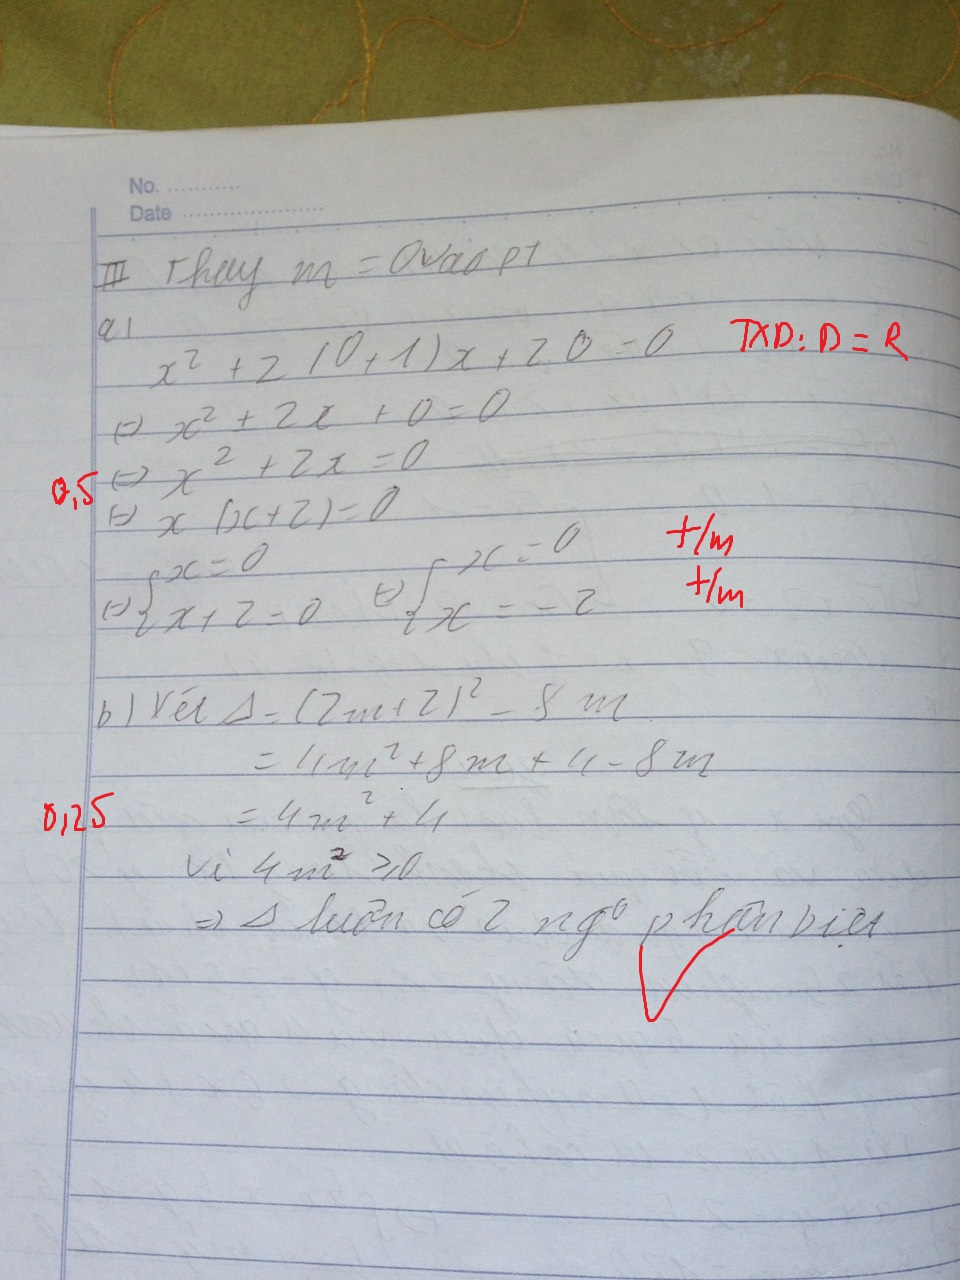 No. ...........
Date ......................
III Thay m = 0 vào pt
a)
x² + 2(0+1)x + 2.0 = 0 TXD: D = R
⇔ x² + 2x + 0 = 0
⇔ x² + 2x = 0
0,5
⇔ x(x+2) = 0
⇔ { x = 0 ⇔ { x = 0 t/m
x + 2 = 0 x = -2 t/m
b) Xét Δ = (2m+2)² - 8m
= 4m² + 8m + 4 - 8m
0,25 = 4m² + 4
Vì 4m² ≥ 0
⇒ Δ luôn có 2 ngo phân biệt